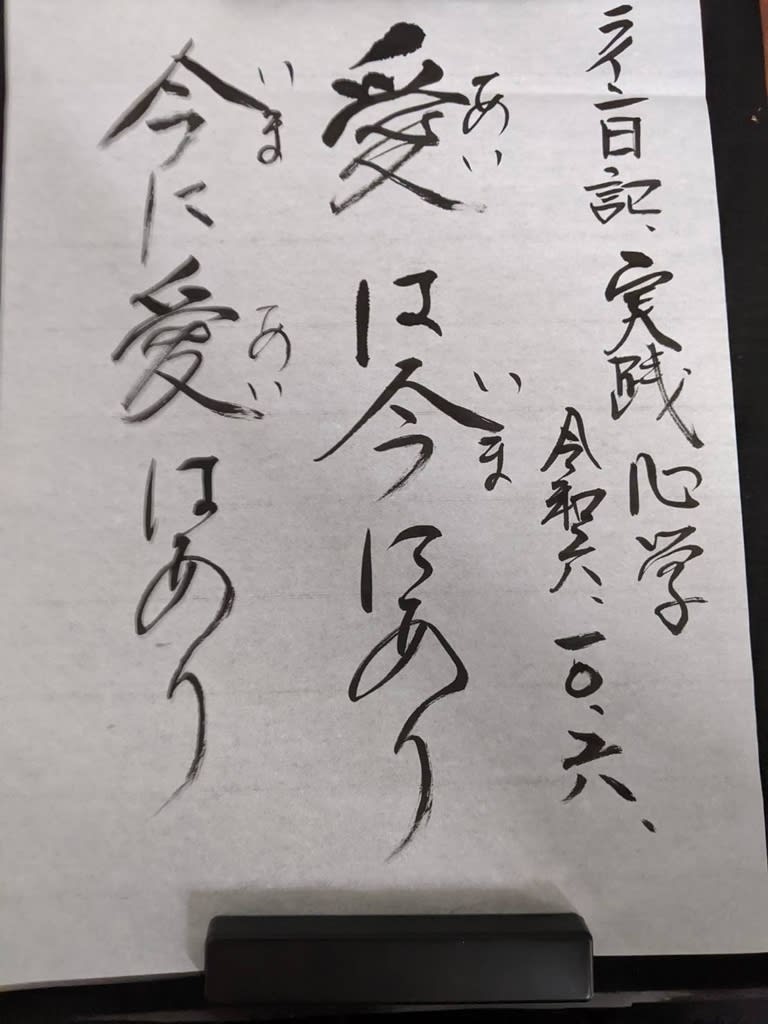 ライン日記、実践心学
令和六、一〇、六、
あい いま
愛は今にあり
いま あい
今に愛はあり